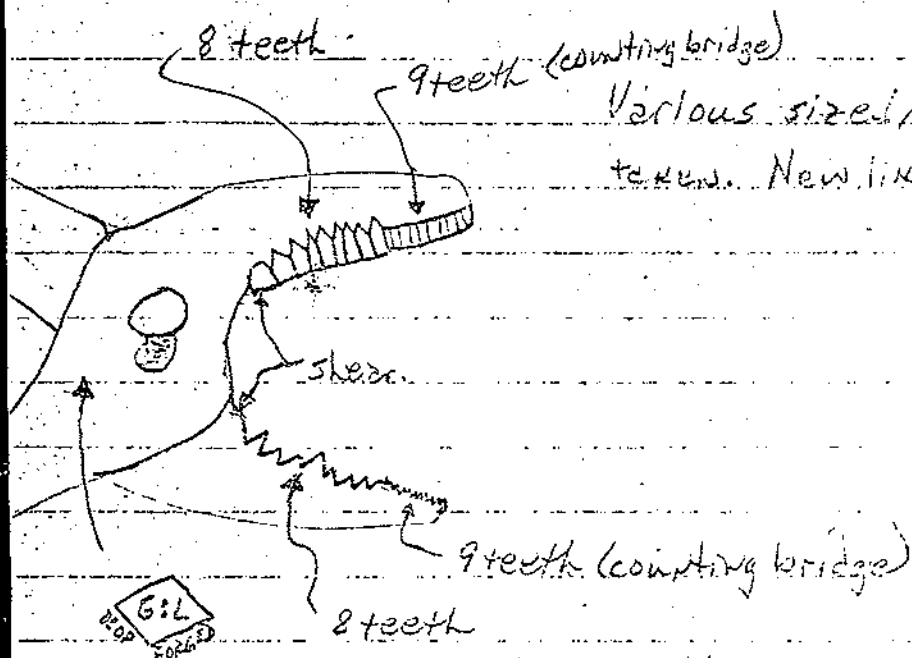 8 teeth
9 teeth (counting bridge)
Various sized
taken. New
shear.
9 teeth (counting bridge)
8 teeth
G:L
DROP
FORGED